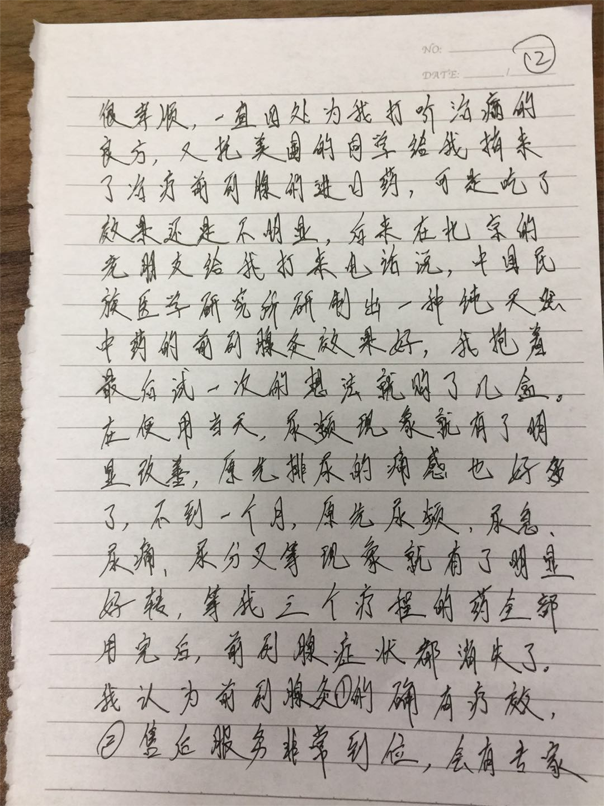 NO:
12
DATE: /
很孝顺，一直四处为我打听治病的
良方，又托美国的同学给我捎来
了治疗前列腺的进口药，可是吃了
效果还是不明显，后来在北京的
老朋友给我打来电话说，中国民
族医学研究所研制出一种纯天然
中药的前列腺灸效果好，我抱着
最后试一次的想法就购了几盒。
在使用当天，尿频现象就有了明
显改善，原先排尿的痛感也好多
了，不到一个月，原先尿频、尿急、
尿痛、尿分叉等现象就有了明显
好转，等我三个疗程的药全部
用完后，前列腺症状都消失了。
我认为前列腺灸①的确有疗效，
②售后服务非常到位，会有专家